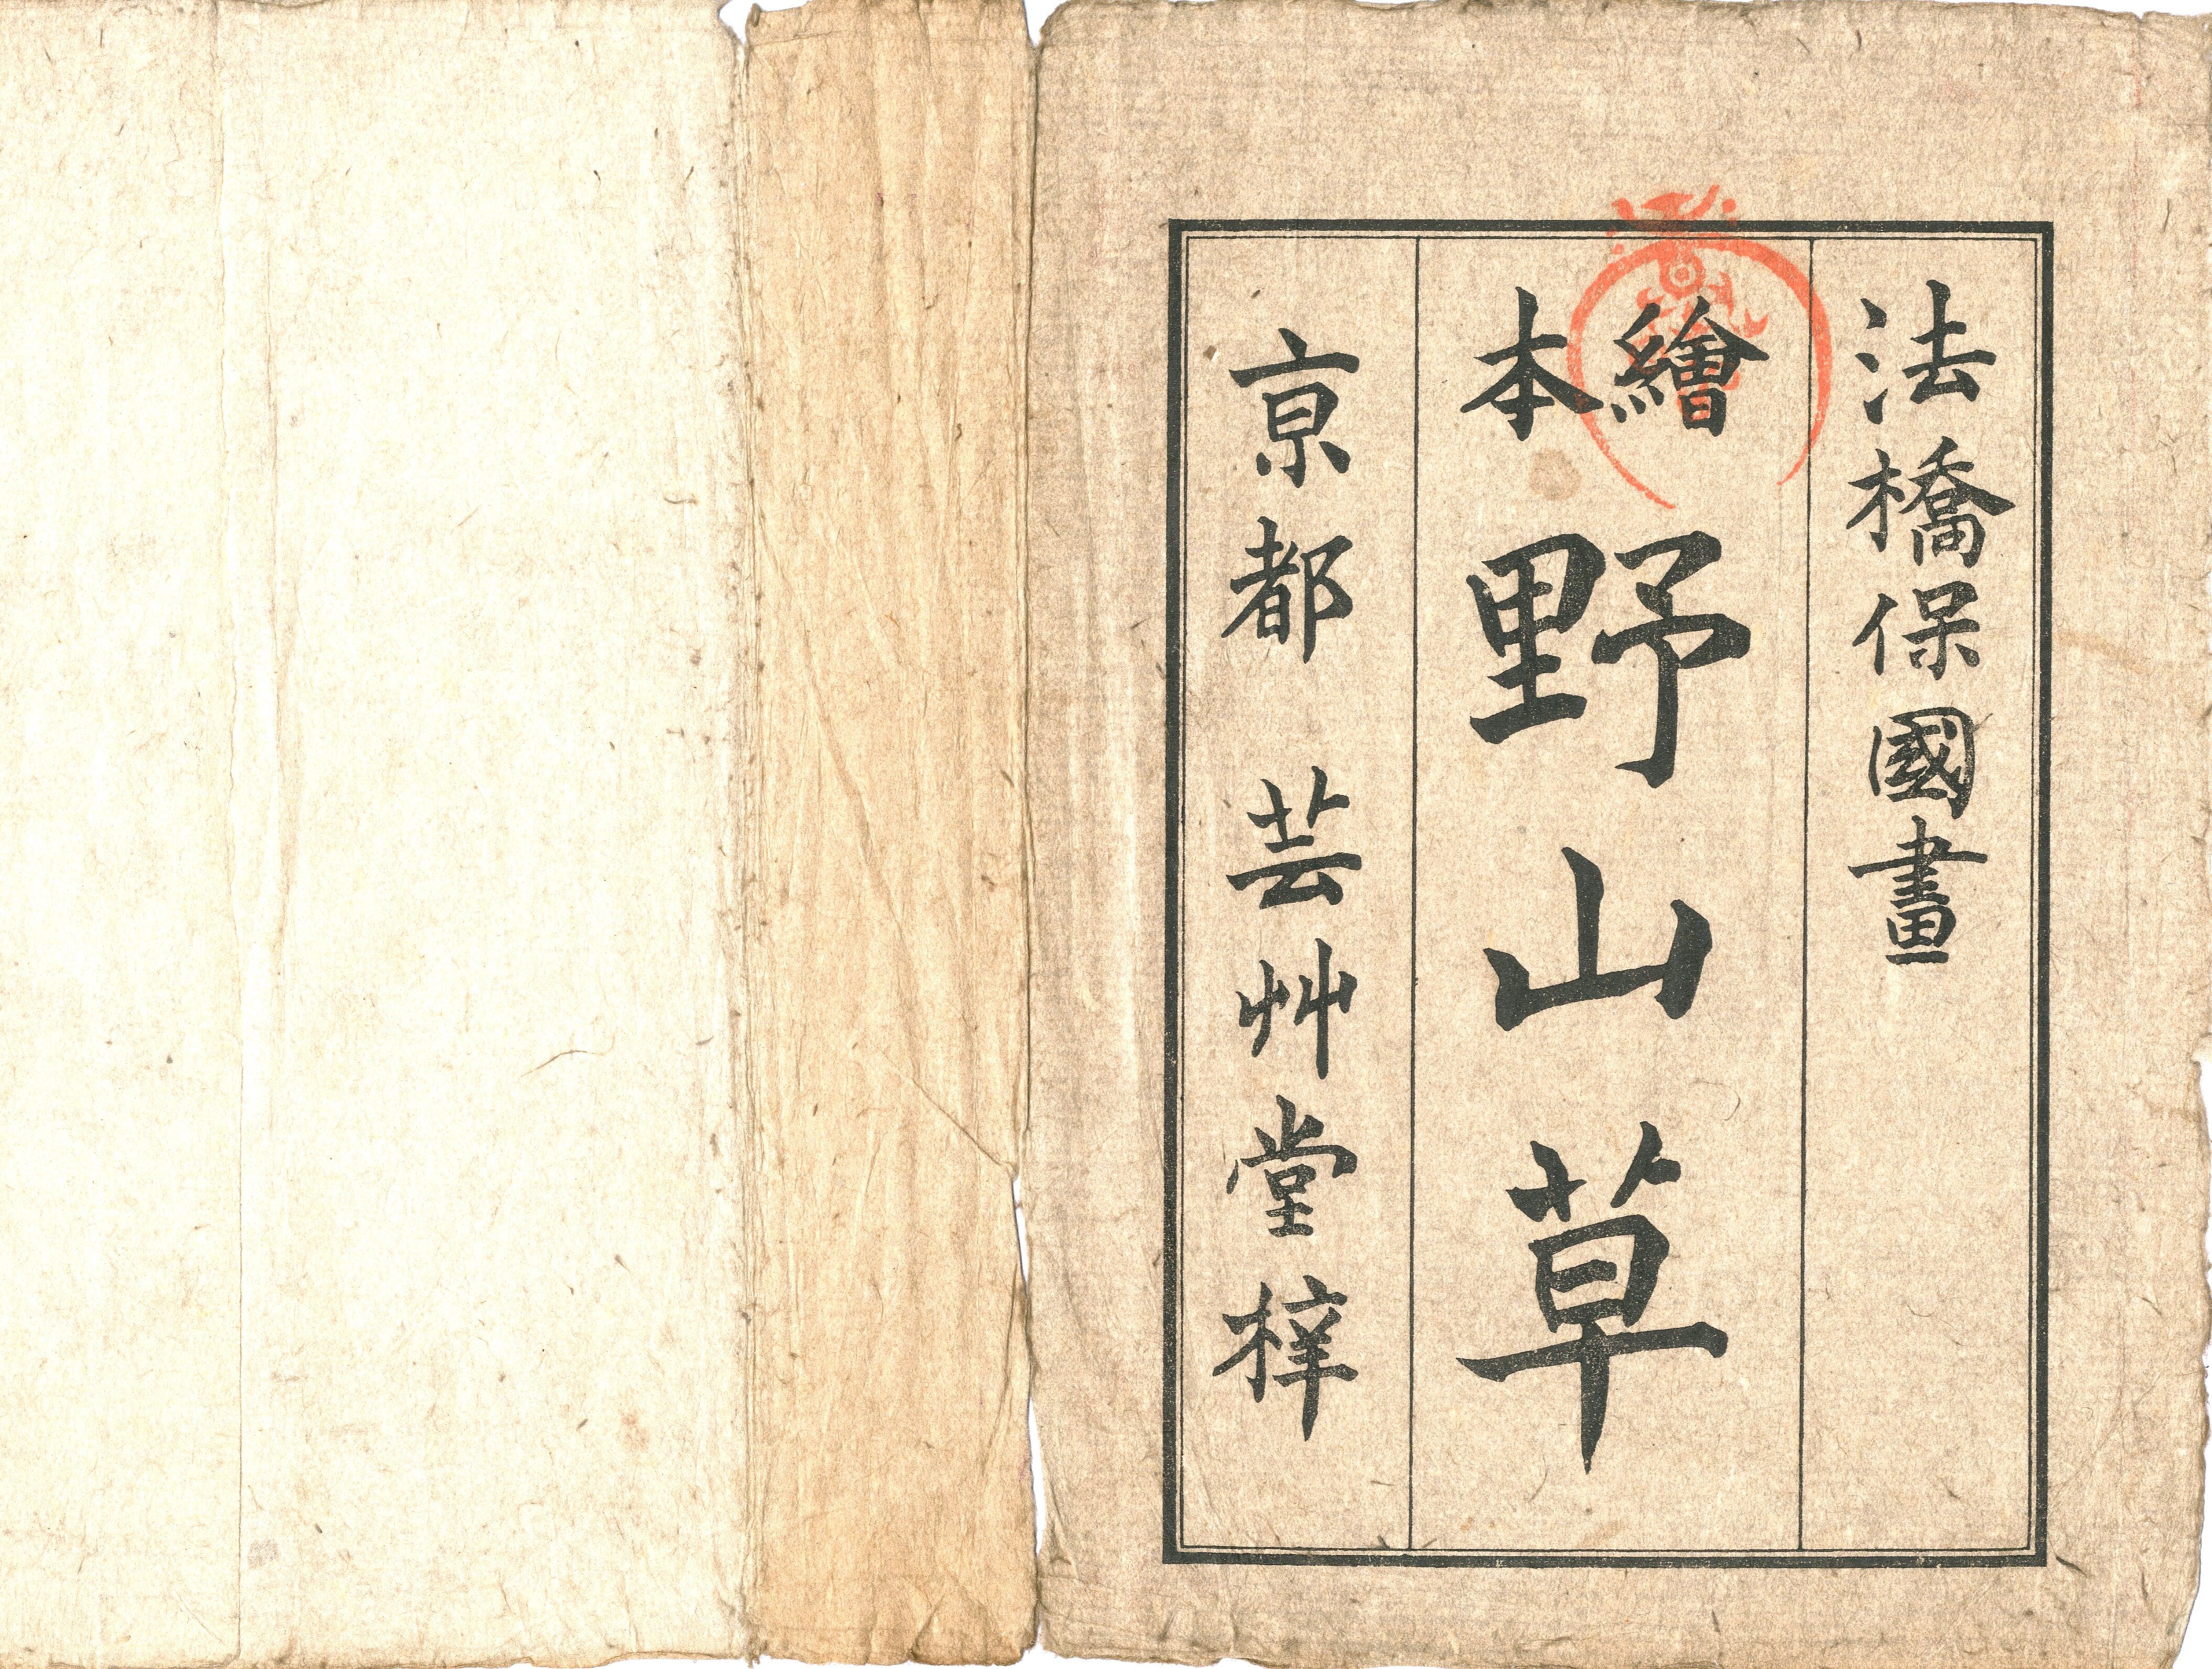 法橋保國畫
繪本野山草
京都 芸艸堂梓